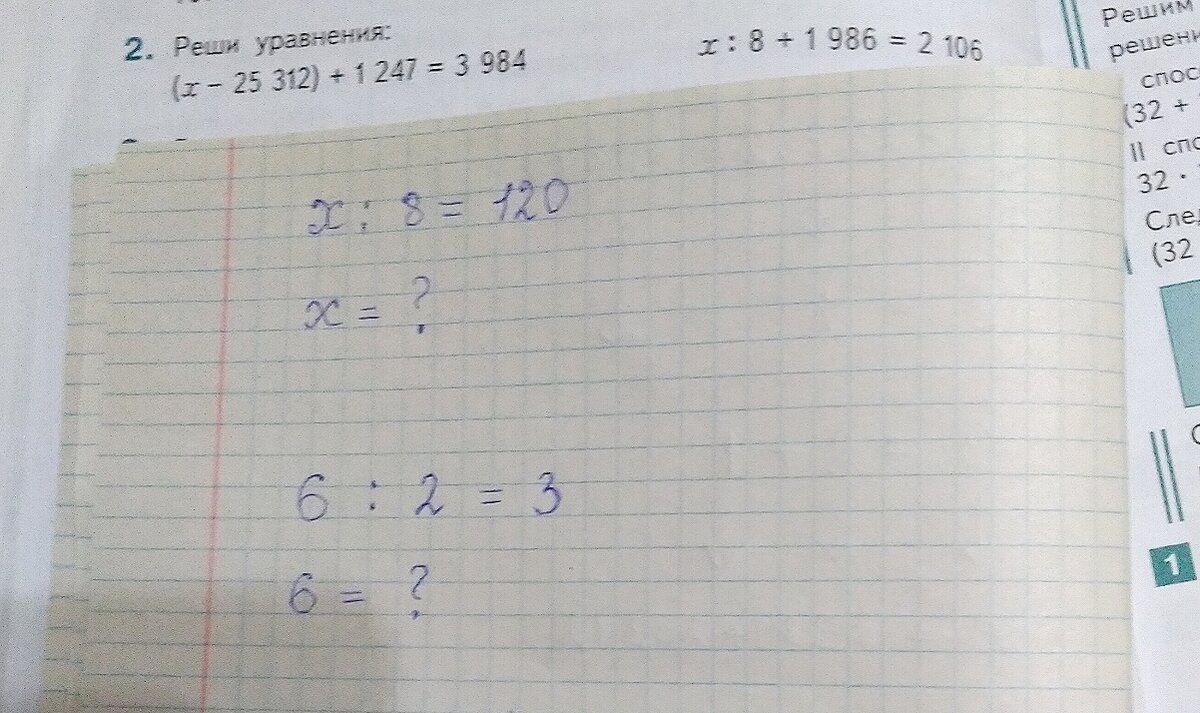 2. Реши уравнения:
(x − 25 312) + 1 247 = 3 984
x : 8 + 1 986 = 2 106
x : 8 = 120
x = ?
6 : 2 = 3
6 = ?
Решим
(32 +
II
32 ·
(32
1